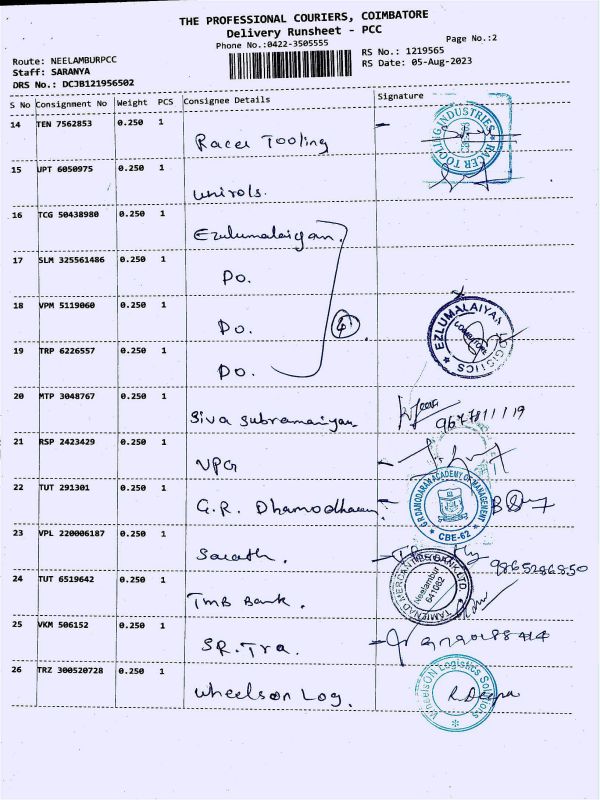 THE PROFESSIONAL COURIERS, COIMBATORE
Delivery Runsheet - PCC
Phone No.:0422-3505555
Page No.:2
Route: NEELAMBURPCC
Staff: SARANYA
DRS No.: DCJB121956502
RS No.: 1219565
RS Date: 05-Aug-2023
S No Consignment No Weight PCS Consignee Details Signature
14 TEN 7562853 0.250 1 Racer Tooling
RACER TOOLING INDUSTRIES
15 UPT 6050975 0.250 1 unirols.
16 TCG 50438980 0.250 1 Ezulumalaiyan.
17 SLM 325561486 0.250 1 Do.
18 VPM 5119060 0.250 1 Do. 4
EZLUMALAIYAN LOGISTICS
COIMBATORE
19 TRP 6226557 0.250 1 Do.
20 MTP 3048767 0.250 1 Siva Subramaiyan
21 RSP 2423429 0.250 1 VPG
22 TUT 291301 0.250 1 G.R. Dhamodharan
G R DAMODARAN ACADEMY OF MANAGEMENT
CBE-62
23 VPL 220006187 0.250 1 Sarath. 9865286850
24 TUT 6519642 0.250 1 TMB Bank.
TAMILNAD MERCANTILE BANK LTD.
Neelambur
641062
25 VKM 506152 0.250 1 SR.Tra.
26 TRZ 300520728 0.250 1 wheelson Log.
WheelsON Logistics Solutions
R.Deepa